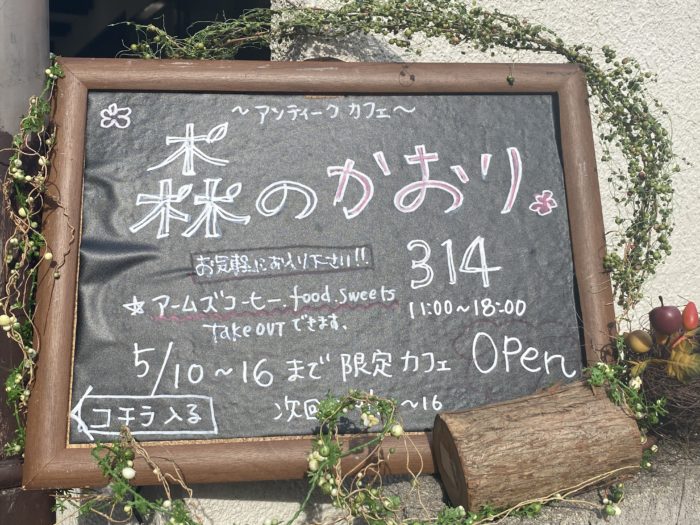 ～アンティーク カフェ～
森のかおり
お気軽にお入り下さい!!
314
☆ アームズコーヒー、food、sweets
11:00～18:00
TakeOUTできます。
5/10～16 まで 限定カフェ OPen
コチラ入る
次回 ～16